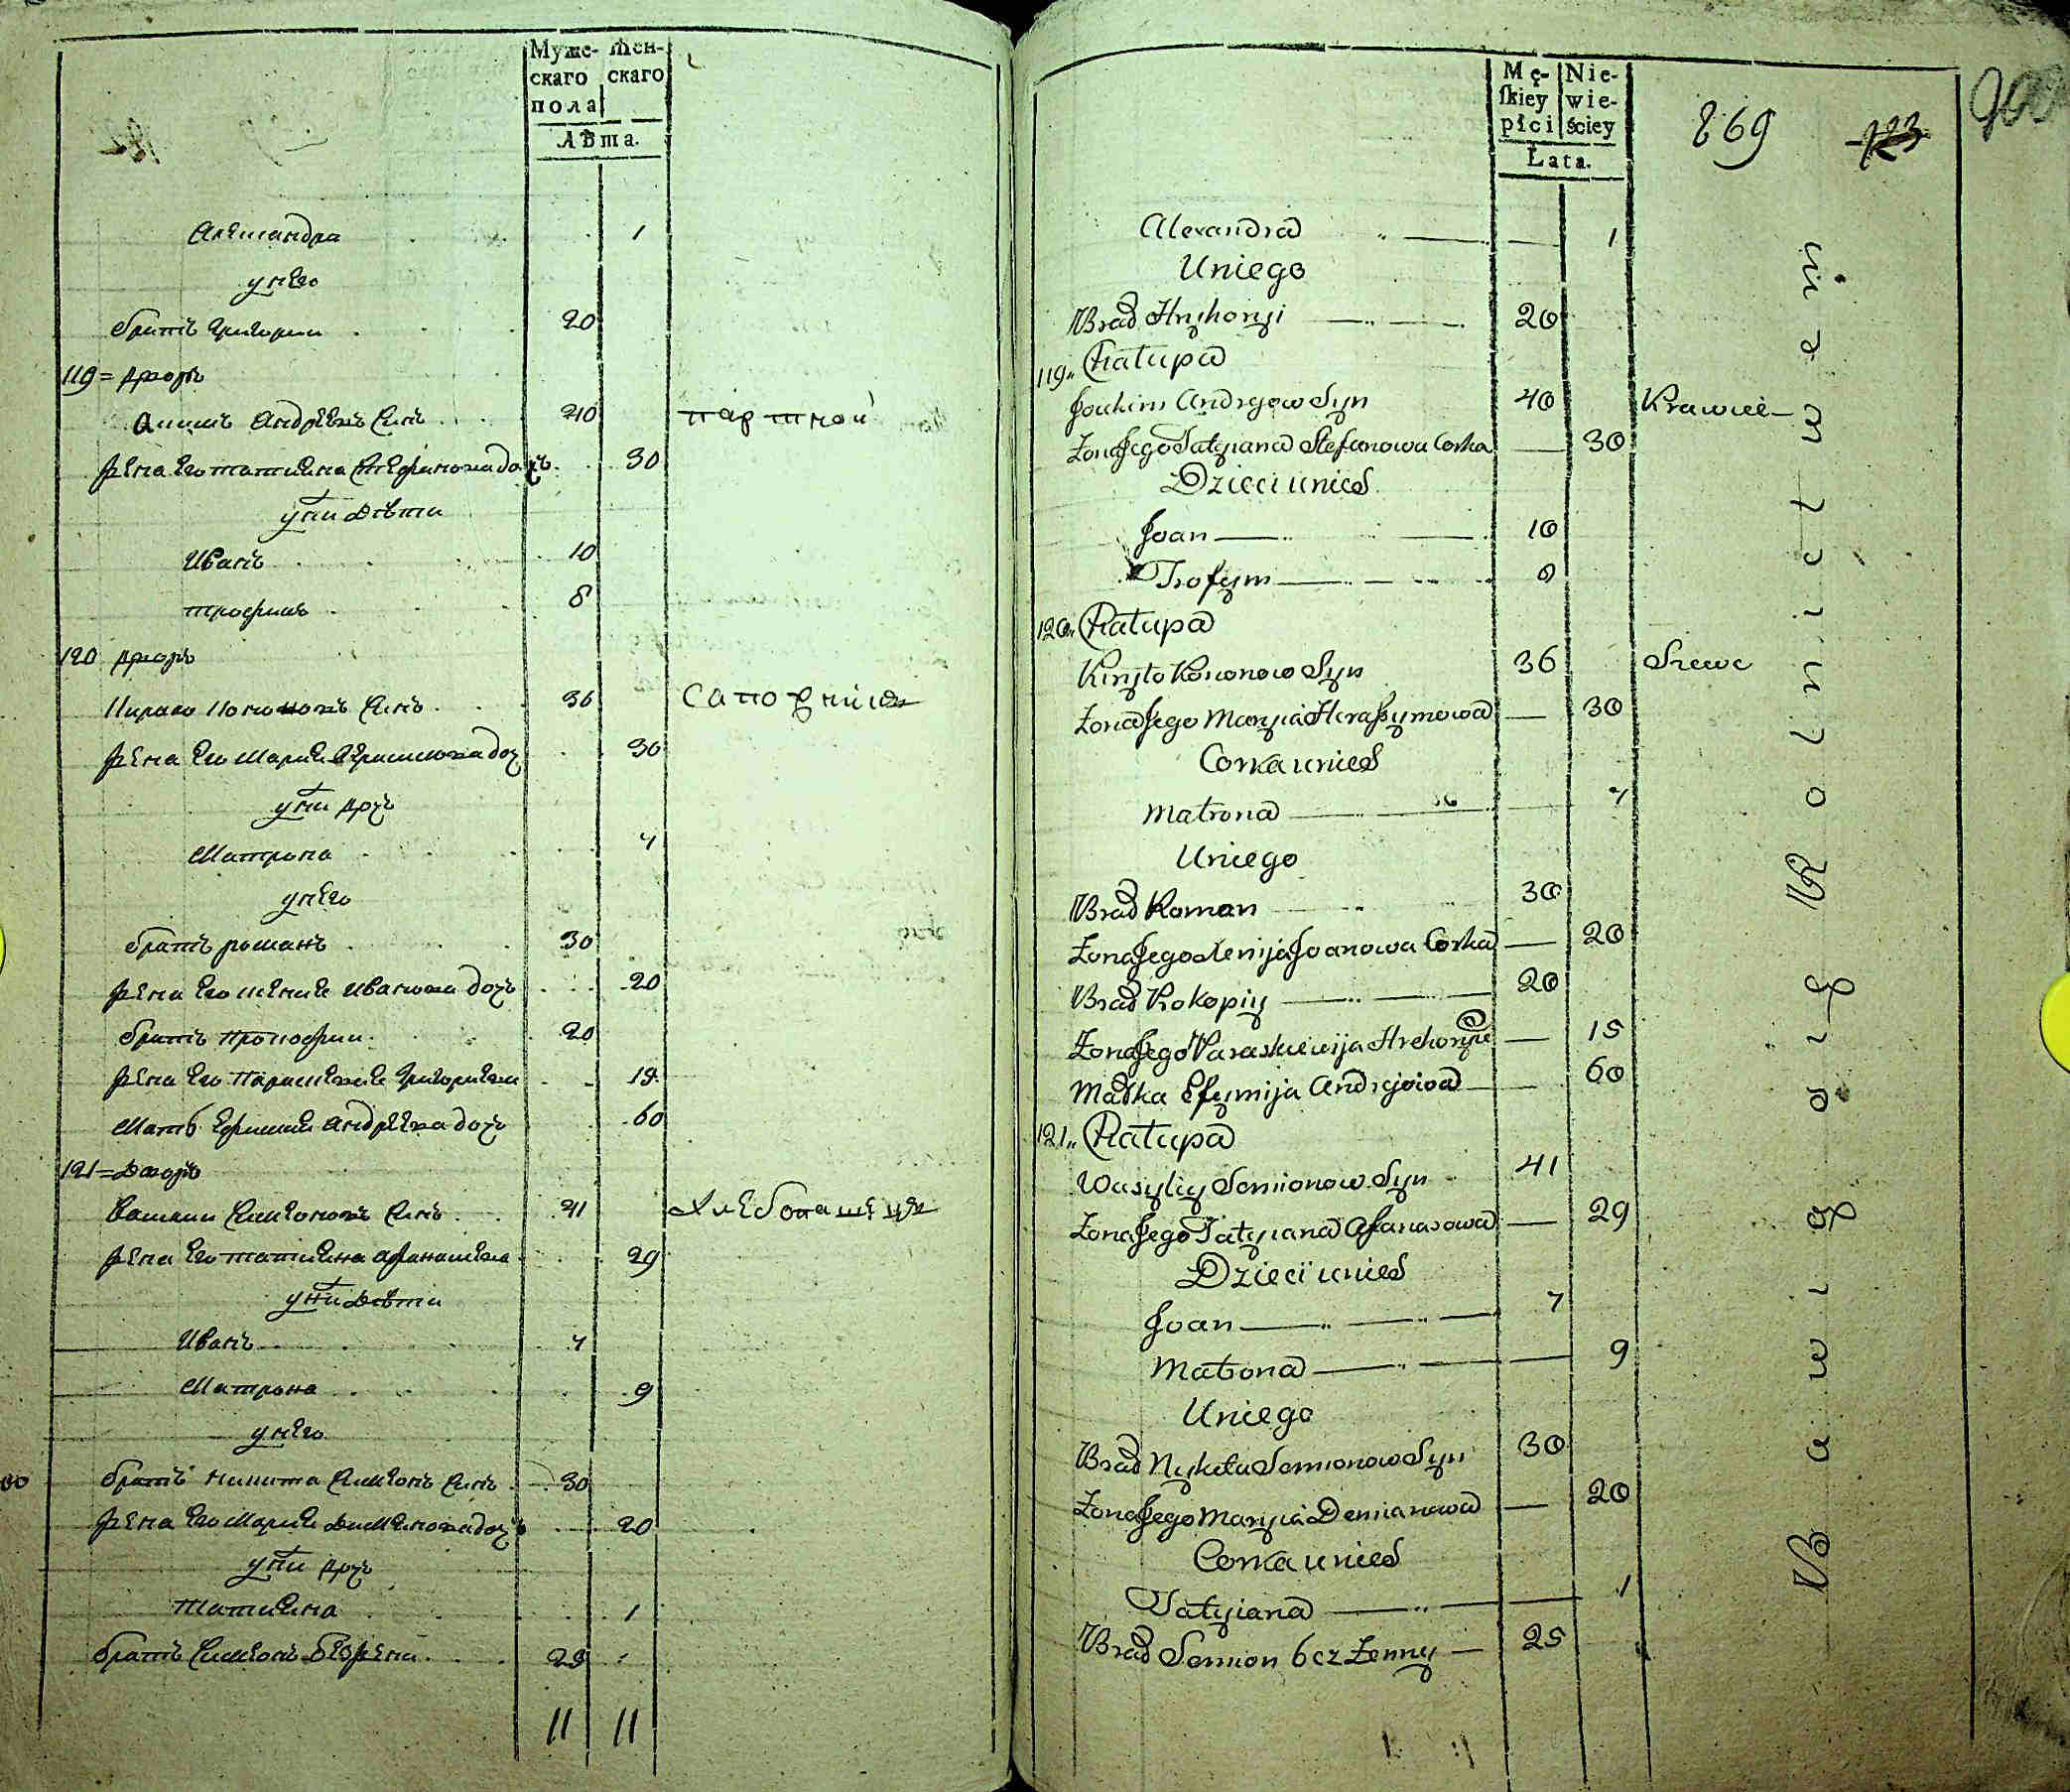 Муже- Жен-
скаго скаго
пола
Лѣта.
Александра 1
у него
братъ григории 20
119 = дворъ
Акимъ Андрѣевъ сынъ 40 партной
жена его татиѣна Стефанова дочъ 30
у ни дѣти
Иванъ 10
трофимъ 8
120 дворъ
Кирило Кононовъ сынъ 36 сапожникъ
жена его Мариѣ Герасимова доч 30
у ни дочъ
Матрона 7
у него
братъ романъ 30
жена его ксениѣ Иванова дочъ 20
братъ прокофии 20
жена его Парасковиѣ григориева 15
Мать ефимиѣ Андрѣева дочъ 60
121 = дворъ
Василии Симионовъ сынъ 41 хлебопашецъ
жена его татиѣна афанасиева 29
у ни дѣти
Иванъ 7
Матрона 9
у него
братъ никита Симионъ сынъ 30
жена его Мариѣ димианова дочъ 20
у ни дочъ
татиѣна 1
братъ Симионъ без жени 25
11 11
Mę- Nie-
ſkiey wie-
płci ściey
Łata.
869
123
Alexandra 1
Uniego
Brad Hryhoryi 20
119„ Chałupa
Joachim Andryow Syn 40 Krawiec
Zona Jego Tatyiana Stefanowa Corka 30
Dzieci unied
Joan 10
Trofym 8
120„ Chałupa
Kiryło Kononow Syn 36 Szewc
Zona Jego Maryia Heraszymowa 30
Corka unied
Matrona 7
Uniego
Brad Roman 30
Zona Jego Xenija Joanowa Corka 20
Brad Prokopiy 20
Zona Jego Paraskiewija Hrehoryie 15
Matka Efymija Andryiowa 60
121„ Chałupa
Wasyliy Semionow Syn 41
Zona Jego Tatyiana Afanasowa 29
Dzieci unied
Joan 7
Matrona 9
Uniego
Brad Nykita Semionow Syn 30
Zona Jego Maryia Demianowa 20
Corka unied
Tatyiana 1
Brad Semion bez Zenny 25
Bawią się Rolnictwem